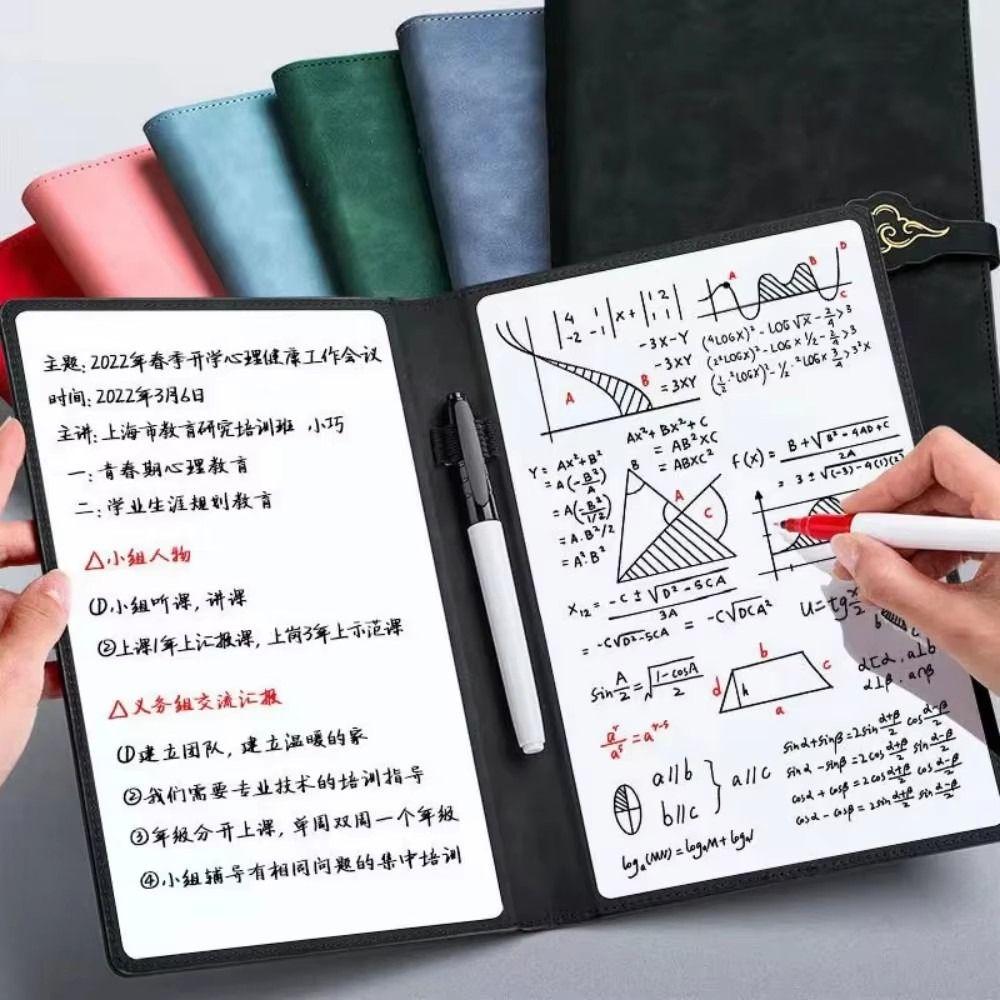 主题: 2022年春季开学心理健康工作会议
时间: 2022年3月6日
主讲: 上海市教育研究培训班 小巧
一: 青春期心理教育
二: 学业生涯规划教育
△小组人物
①小组听课, 讲课
②上课1年上汇报课, 上岗3年上示范课
△义务组交流汇报
①建立团队, 建立温暖的家
②我们需要专业技术的培训指导
③年级分开上课, 单周双周一个年级
④小组辅导有相同问题的集中培训
|4 1| x + |1 2|
|-2 -1| |1 1|
-3X-Y
-3XY
= 3XY
A
B
A
B
C
D
(4LOGX)² - LOG√X - 2/4 > 3
(2²LOGX)² - LOGX ½ - 2/4 > 3
(½·²LOGX)² - ½·²LOGX 3/4 > 3²X
AX² + BX² + C
= AB²XC
= ABXC²
Y = AX² + B²
= A(-B²/A)
= A(-B²/1/2)
= A·B²/2
= A²·B²
B
A
C
f(X) = B + √B² - 4AD + C / 2A
= 3 ± √(-3) - 4(1)(2²
X₁₂ = -C ± √D² - 5CA / 3A
= -C√D² - 5CA = -C√DCA²
U = tg x/2
sin A/2 = √1-cosA / 2
b
d
h
c
a
α⊥b
α⊥β · a∩β
aʳ/aˢ = aʳ⁻ˢ
a//b
b//c
} a//c
sinα + sinβ = 2sin α+β/2 cos α-β/2
sinα - sinβ = 2cos α+β/2 sin α-β/2
cosα + cosβ = 2cos α+β/2 cos α-β/2
cosα - cosβ = 2sin α+β/2 sin α-β/2
logₐ(MN) = logₐM + logₐN